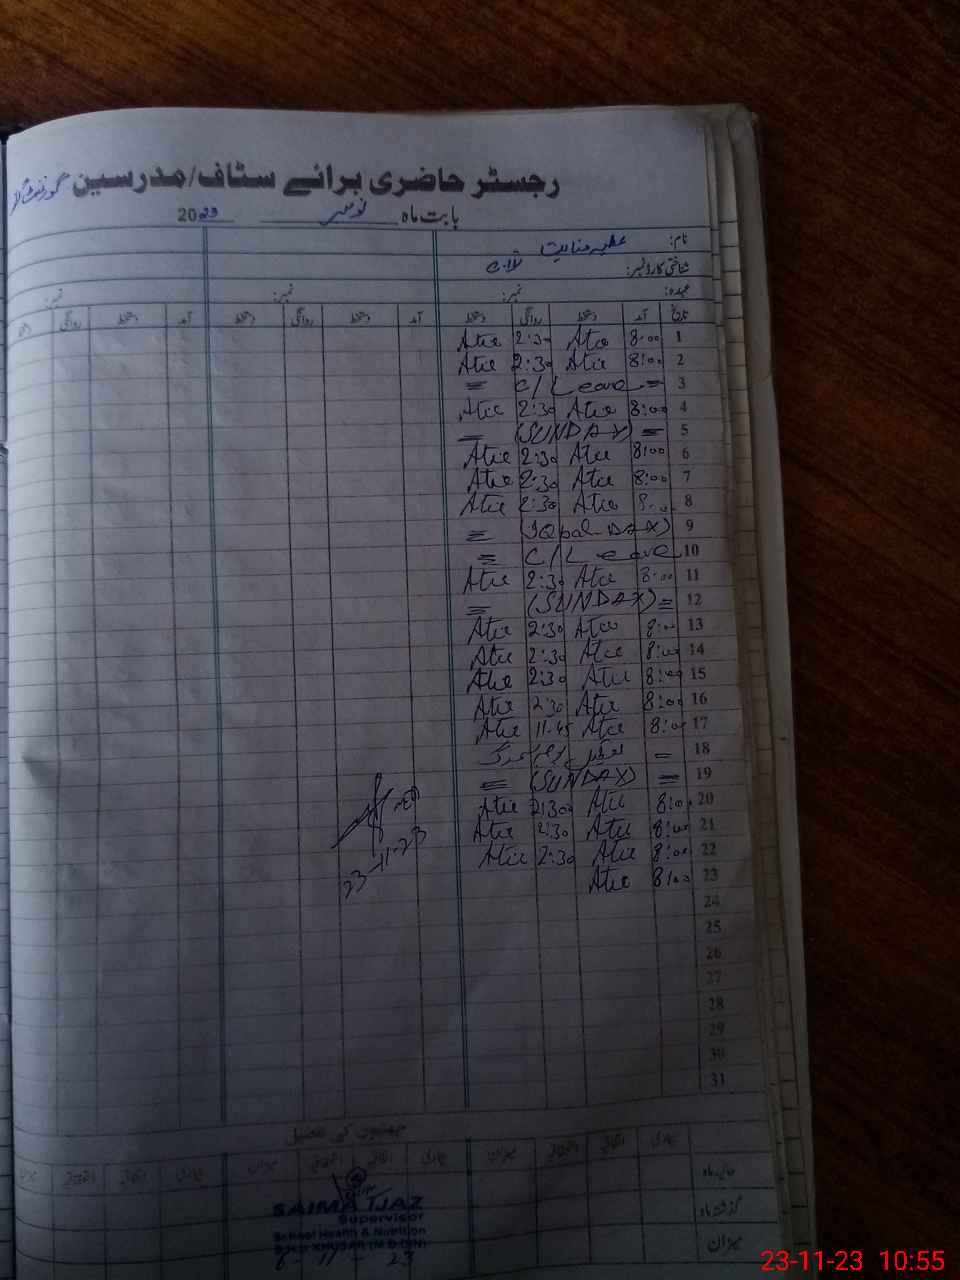 رجسٹر حاضری برائے سٹاف/مدرسین گورنمنٹ
بابت ماہ نومبر 2023
نام: عطیہ عنایت
شناختی کارڈ نمبر:
عہدہ: نمبر: نمبر: نمبر:
تاریخ آمد دستخط روانگی دستخط آمد دستخط روانگی دستخط آمد دستخط روانگی
1 8:00 Atie 2:30 Atie
2 8:00 Atie 2:30 Atie
3 = C/Leave =
4 8:00 Atie 2:30 Atie
5 = (SUNDAY) =
6 8:00 Atie 2:30 Atie
7 8:00 Atie 2:30 Atie
8 8:00 Atie 2:30 Atie
9 (Iqbal-DAY) =
10 C/Leave =
11 8:00 Atie 2:30 Atie
12 = (SUNDAY) =
13 8:00 Atie 2:30 Atie
14 8:00 Atie 2:30 Atie
15 8:00 Atie 2:30 Atie
16 8:00 Atie 2:30 Atie
17 8:00 Atie 11:45 Atie
18 =
19 = (SUNDAY) =
20 8:00 Atie 2:30 Atie
21 8:00 Atie 2:30 Atie
22 8:00 Atie 2:30 Atie
23 8:00 Atie
23-11-23
24
25
26
27
28
29
30
31
چھٹیوں کی تفصیل
میزان
حالیہ ماہ
گذشتہ ماہ
میزان
SAIMA IJAZ
Supervisor
School Health & Nutrition
8-11-23
23-11-23 10:55